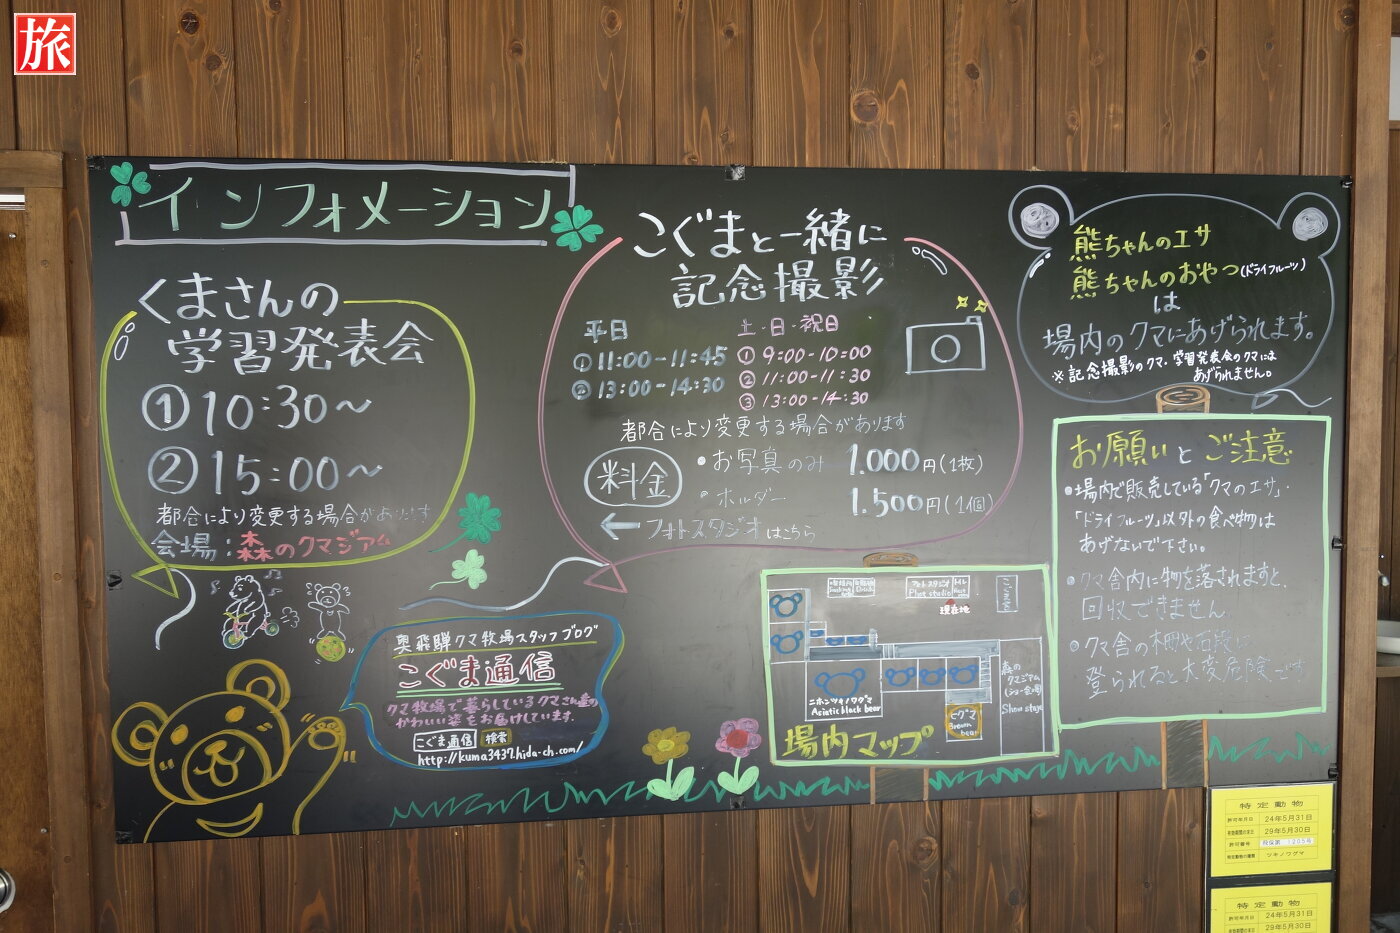 旅
インフォメーション
くまさんの
学習発表会
①10:30〜
②15:00〜
都合により変更する場合があります
会場：森のクマジアム
こぐまと一緒に
記念撮影
平日
①11:00-11:45
②13:00-14:30
土・日・祝日
①9:00-10:00
②11:00-11:30
③13:00-14:30
都合により変更する場合があります
料金
・お写真のみ 1.000円(1枚)
・ホルダー 1.500円(1個)
←フォトスタジオはこちら
熊ちゃんのエサ
熊ちゃんのおやつ(ドライフルーツ)
は
場内のクマにあげられます。
※記念撮影のクマ・学習発表会のクマには
あげられません。
お願いとご注意
・場内で販売している「クマのエサ」・
「ドライフルーツ」以外の食べ物は
あげないで下さい。
・クマ舎内に物を落されますと、
回収できません
・クマ舎の柵や石段に
登られると大変危険です
奥飛騨クマ牧場スタッフブログ
こぐま通信
クマ牧場で暮らしているクマさん達の
かわいい姿をお届けしています。
こぐま通信 検索
http://kuma3437.hida-ch.com/
フォトスタジオ
Phot studio
現在地
ニホンツキノワグマ
Asiatic black bear
ヒグマ
Brown
bear
森の
クマジアム
(ショー会場)
Show stage
場内マップ
特定動物
許可年月日 24年5月31日
有効期間の末日 29年5月30日
許可番号 飛保第 1205号
特定動物の種類 ツキノワグマ
特定動物
許可年月日 24年5月31日
29年5月30日